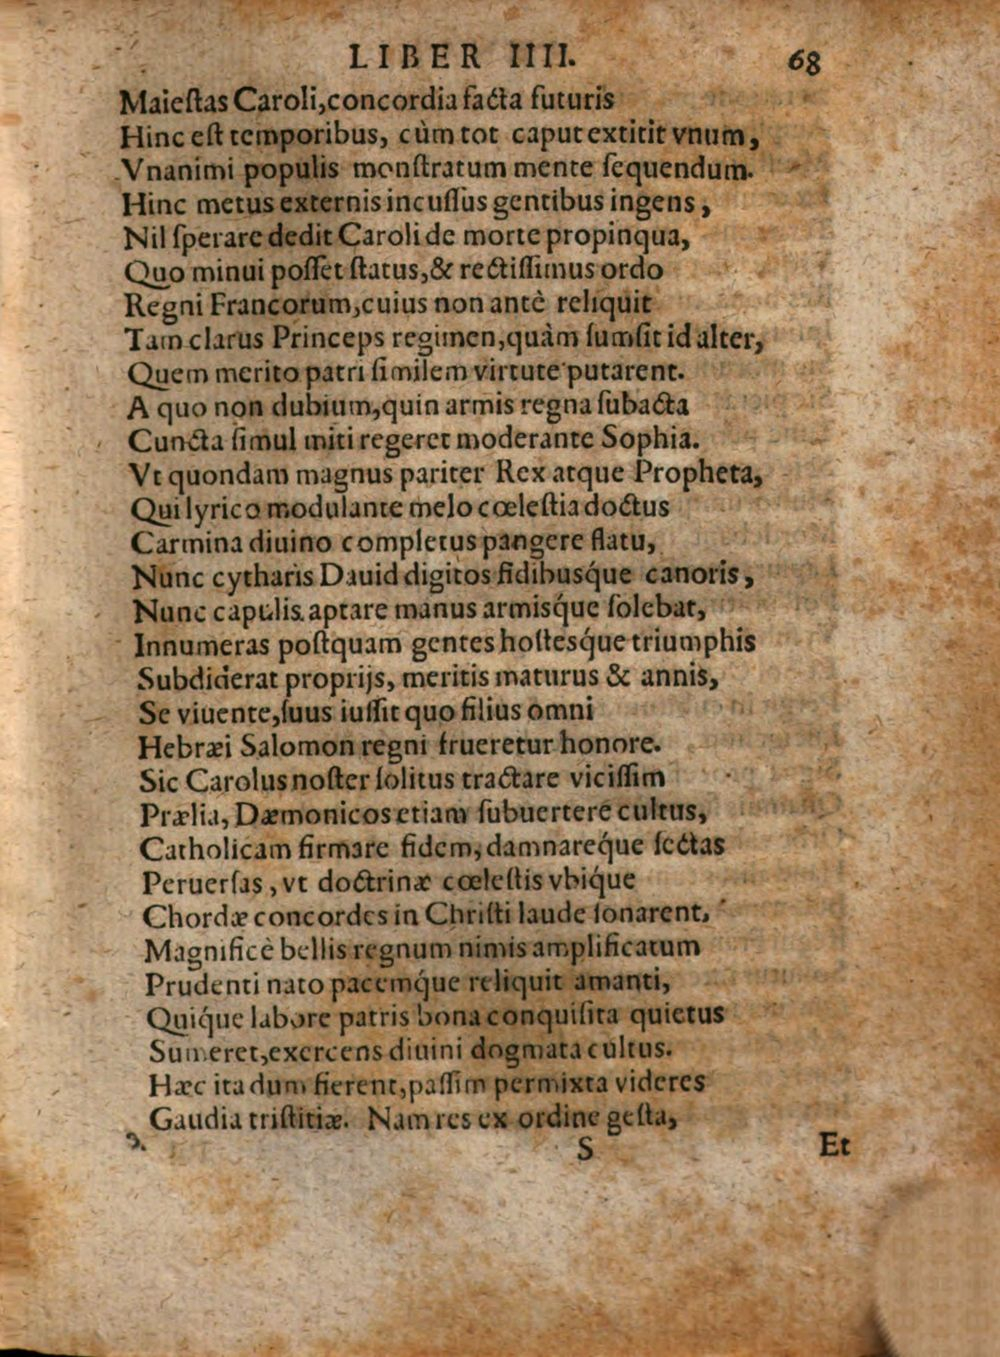 LIBER IIII. 68
Maieſtas Caroli,concordia facta futuris
Hinc eſt temporibus, cùm tot caput extitit vnum,
Vnanimi populis monſtratum mente ſequendum.
Hinc metus externis incuſſus gentibus ingens,
Nil ſperare dedit Caroli de morte propinqua,
Quo minui poſſet ſtatus,& rectiſſimus ordo
Regni Francorum,cuius non antè reliquit
Tam clarus Princeps regimen,quàm ſumſit id alter,
Quem merito patri ſimilem virtute putarent.
A quo non dubium,quin armis regna ſubacta
Cuncta ſimul miti regeret moderante Sophia.
Vt quondam magnus pariter Rex atque Propheta,
Qui lyrico modulante melo cœleſtia doctus
Carmina diuino completus pangere flatu,
Nunc cytharis Dauid digitos fidibusq́ue canoris,
Nunc capulis aptare manus armisq́ue ſolebat,
Innumeras poſtquam gentes hoſtesq́ue triumphis
Subdiderat proprijs, meritis maturus & annis,
Se viuente,ſuus iuſſit quo filius omni
Hebræi Salomon regni frueretur honore.
Sic Carolus noſter ſolitus tractare viciſſim
Prælia, Dæmonicos etiam ſubuertere cultus,
Catholicam firmare fidem, damnareq́ue ſectas
Peruerſas, vt doctrinæ cœleſtis vbiq́ue
Chordæ concordes in Chriſti laude ſonarent.
Magnificè bellis regnum nimis amplificatum
Prudenti nato pacemq́ue reliquit amanti,
Quiq́ue labore patris bona conquiſita quietus
Sumeret,exercens diuini dogmata cultus.
Hæc ita dum fierent,paſſim permixta videres
Gaudia triſtitiæ. Nam res ex ordine geſta,
S Et